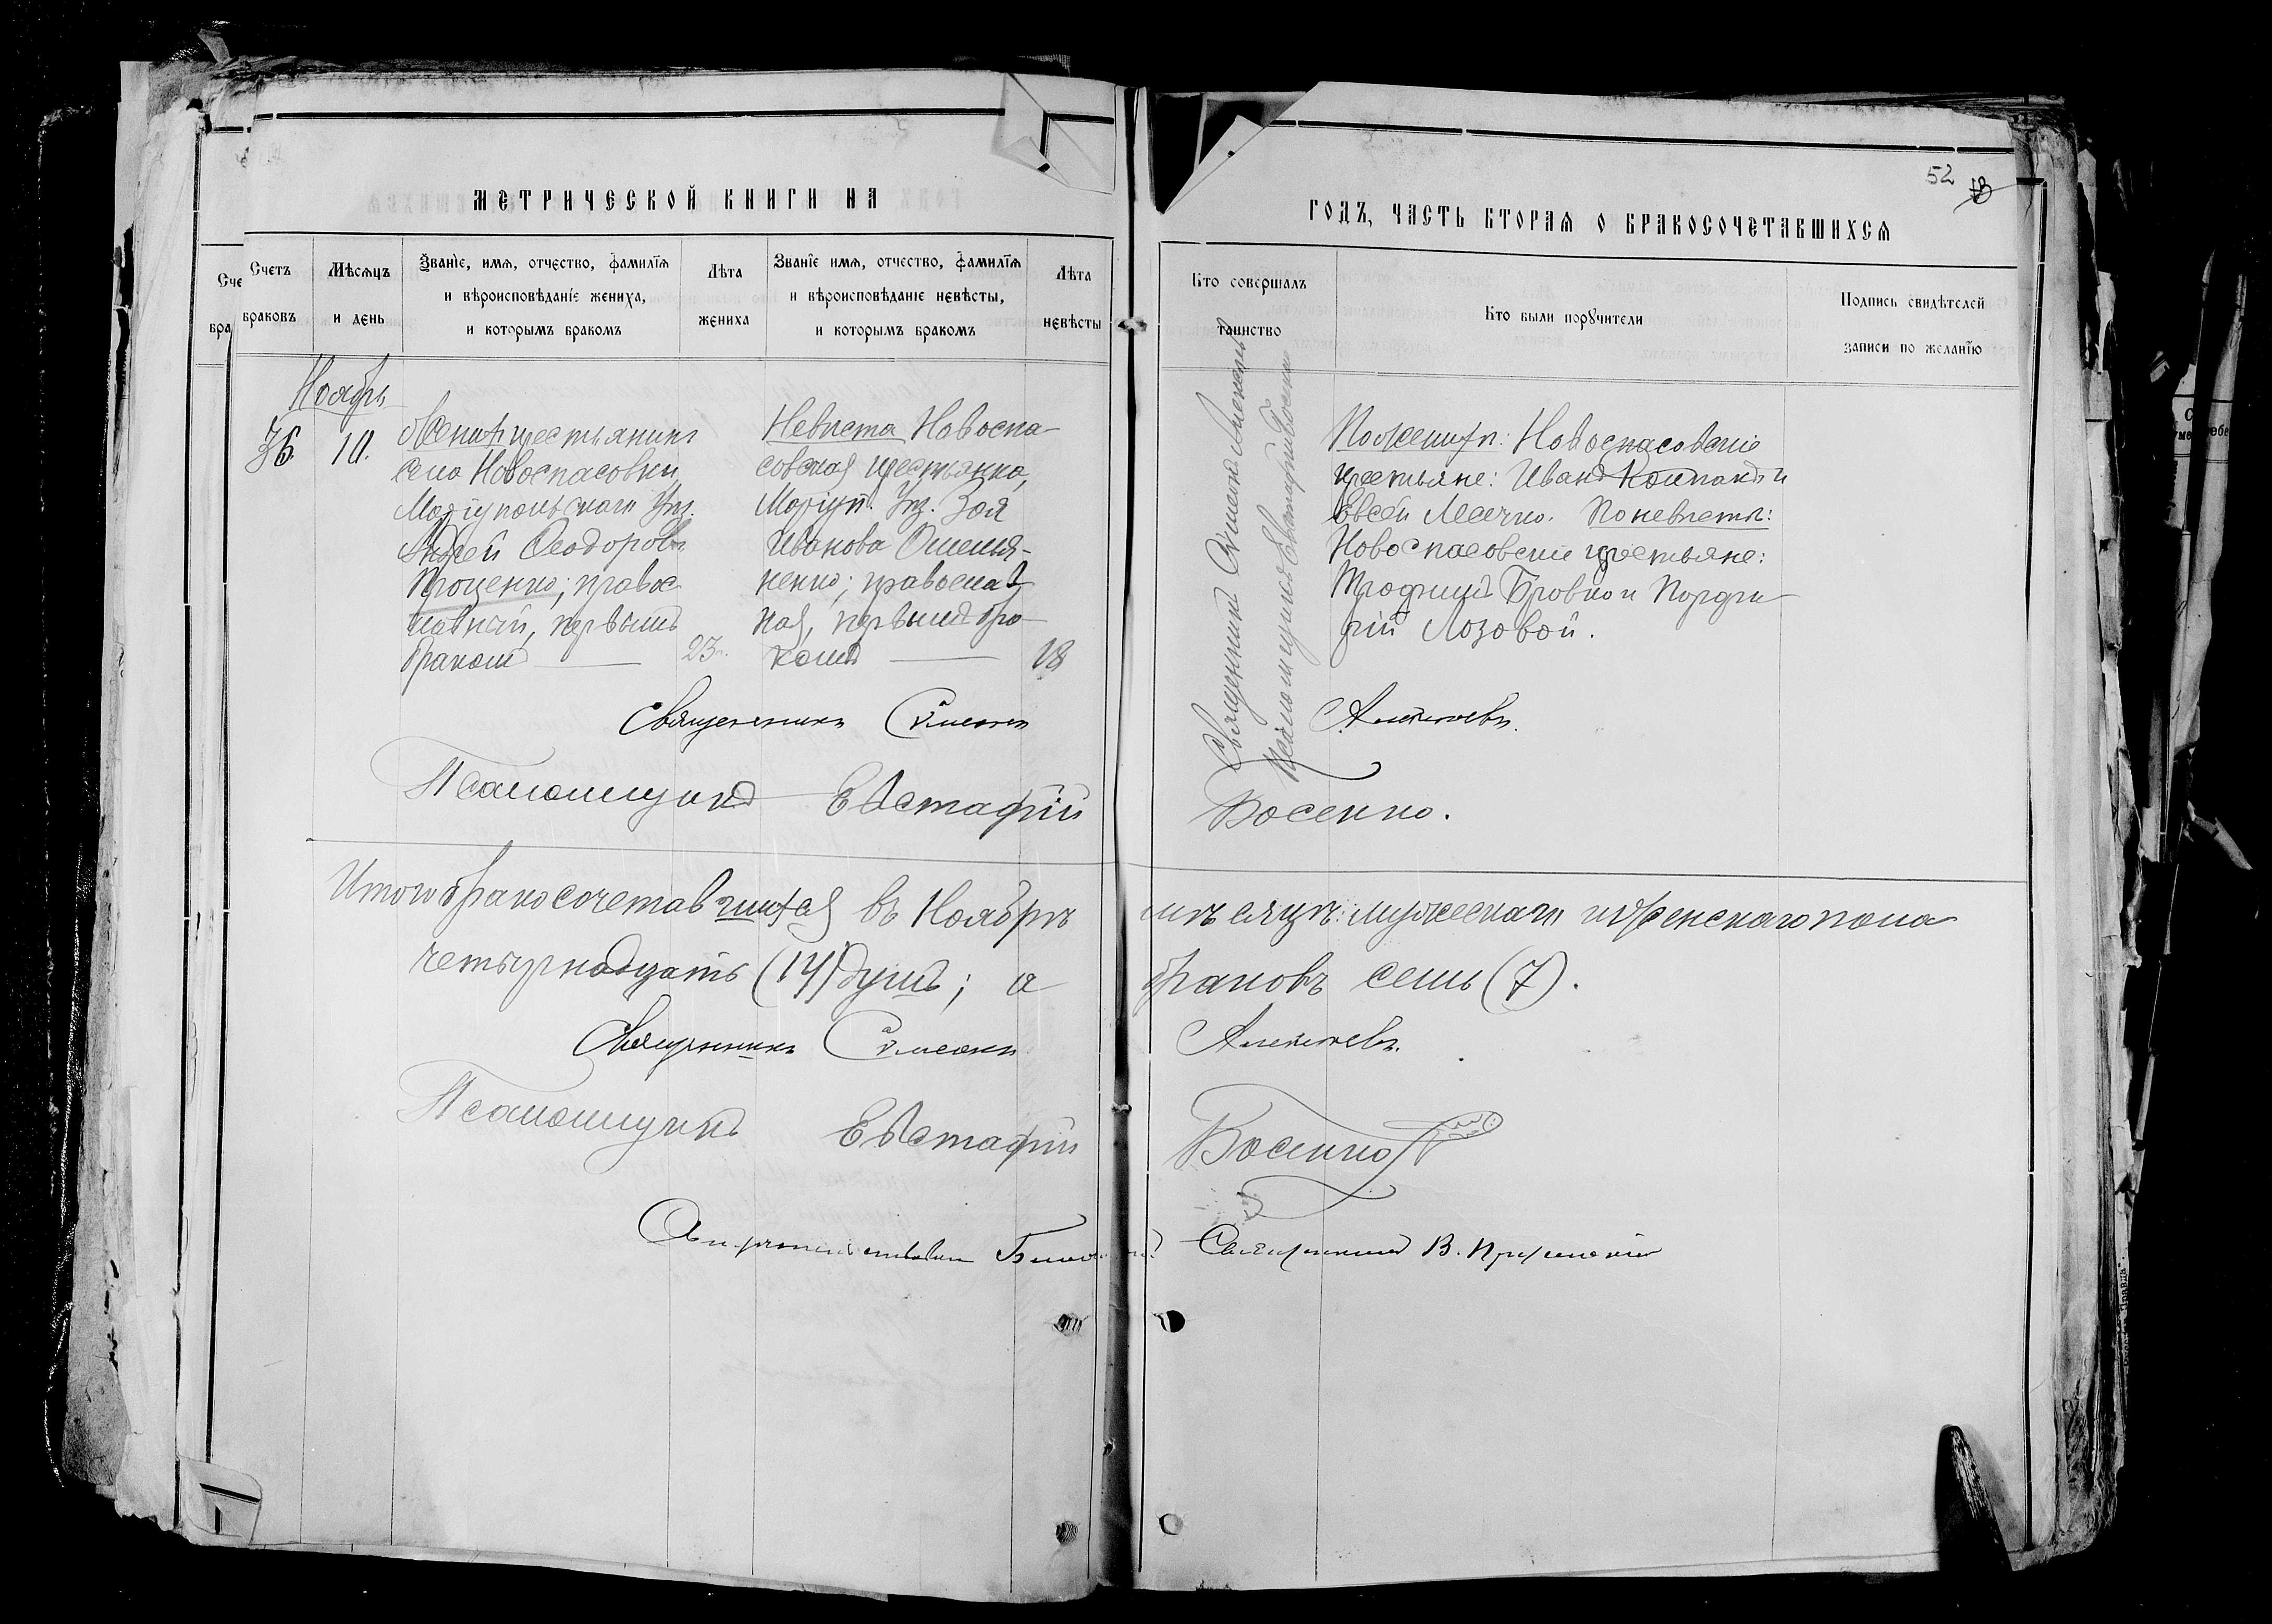 МЕТРИЧЕСКОЙ КНИГИ НА
ГОДЪ, ЧАСТЬ ВТОРАѦ О БРАКОСОЧЕТАВШИХСѦ
52
18
Счетъ браковъ
Мѣсѧцъ и день
Званїе, имѧ, отчество, фамилїѧ
и вѣроисповѣданїе жениха,
и которымъ бракомъ
Лѣта жениха
Званїе имѧ, отчество, фамилїѧ
и вѣроисповѣданїе невѣсты,
и которымъ бракомъ
Лѣта невѣсты
Кто совершалъ таинство
Кто были порꙋчители
Подпись свидѣтелей
записи по желанїю
Ноябрь
36.
10.
Женихъ: крестьянинъ
села Новоспасовки,
Маріупольскаго Уѣз.
Андрей Ѳеодоровъ
Проценко; правос-
лавный, первымъ
бракомъ
23.
Невѣста Новоспа-
совская крестьянка,
Маріуп. Уѣз. Зоя
Иванова Омелья-
ненко; православ-
ная, первымъ бра-
комъ
18
Священникъ Симеонъ Алексѣевъ
Псаломщикъ Евстафій Босенко
По женихѣ: Новоспасовскіе
крестьяне: Иванъ Компанъ и
Евсей Лелечко. По невѣстѣ:
Новоспасовскіе крестьяне:
Трофимъ Бровко и Порфи-
рій Лозовой.
Священникъ Симеонъ Алексѣевъ.
Псаломщикъ Евстафій Босенко.
Итого бракосочетавшихся въ Ноябрѣ мѣсяцѣ: мужескаго и женскаго пола
четырнадцать (14) душъ; а браковъ семь (7).
Священникъ Симеонъ Алексѣевъ.
Псаломщикъ Евстафій Босенко
Священникъ В.